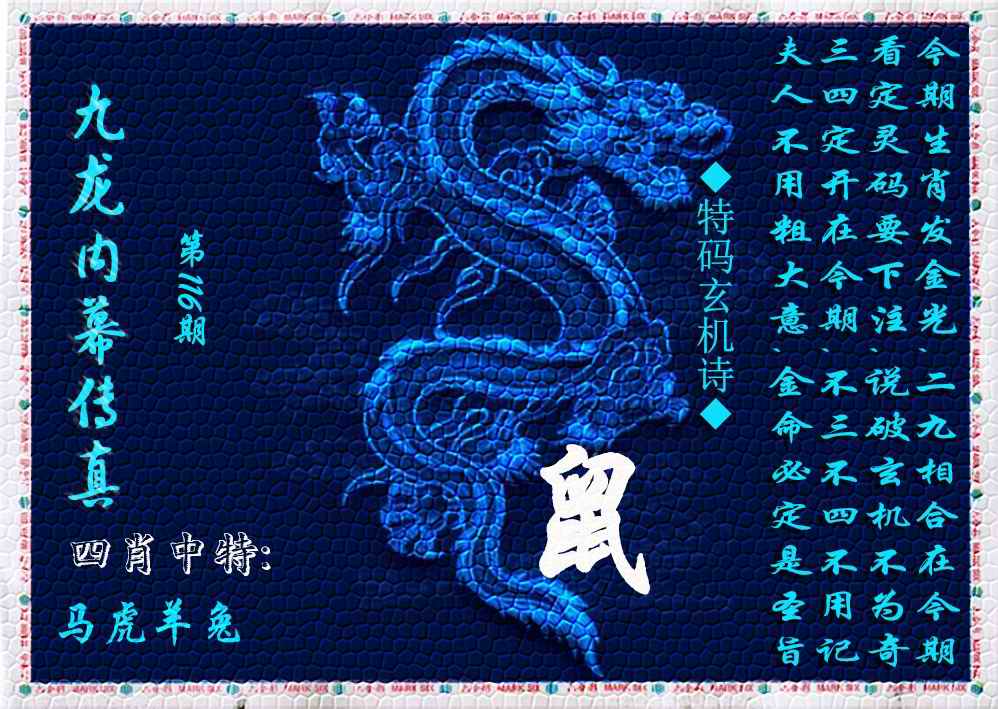 今期生肖发金光、二九相合在今期
看定灵码要下注、说破玄机不为奇
三四定开在今期、不三不四不用记
夫人不用粗大意、金命必定是圣旨
◆特码玄机诗◆
九龙内幕传真
第116期
鼠
四肖中特:
马虎羊兔